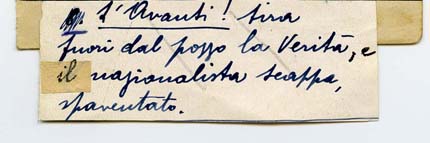 L'Avanti! tira
fuori dal pozzo la Verità, e
il nazionalista scappa,
spaventato.